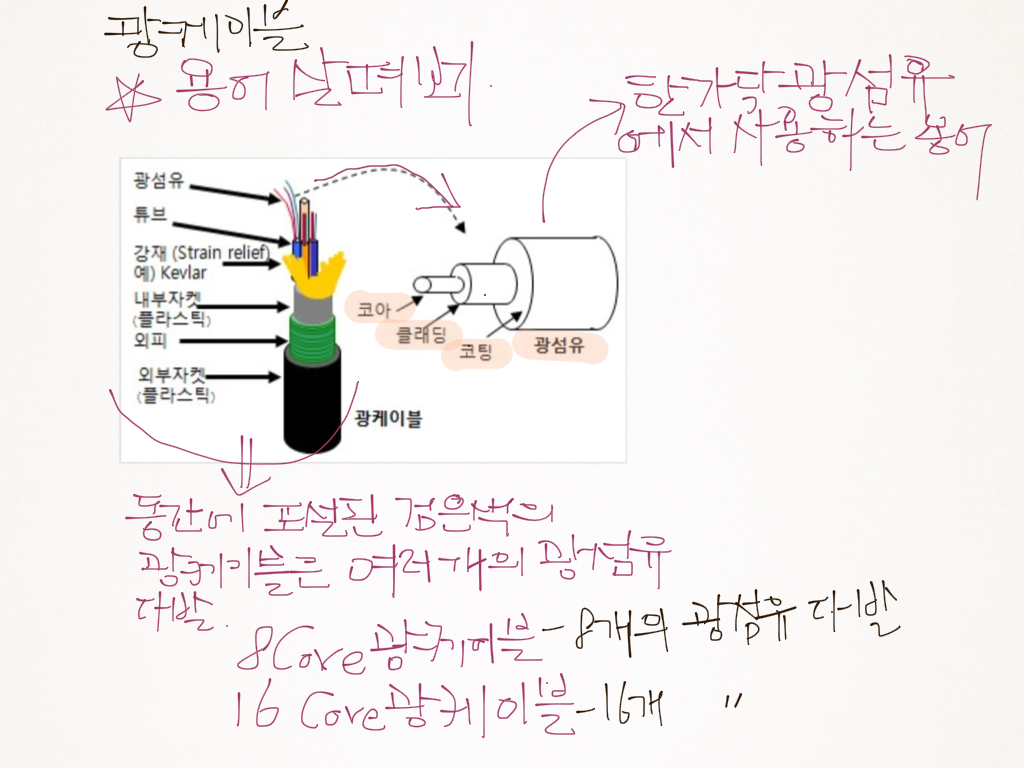 광케이블
☆ 용어 살펴보기.
한가닥 광섬유
에서 사용하는 용어
광섬유
튜브
강재 (Strain relief)
예) Kevlar
내부자켓
(플라스틱)
외피
외부자켓
(플라스틱)
코아
클래딩
코팅
광섬유
광케이블
동간에 포설된 검은색의
광케이블은 여러개의 광섬유
다발.
8Core광케이블 - 8개의 광섬유 다발
16 Core광케이블 - 16개 〃